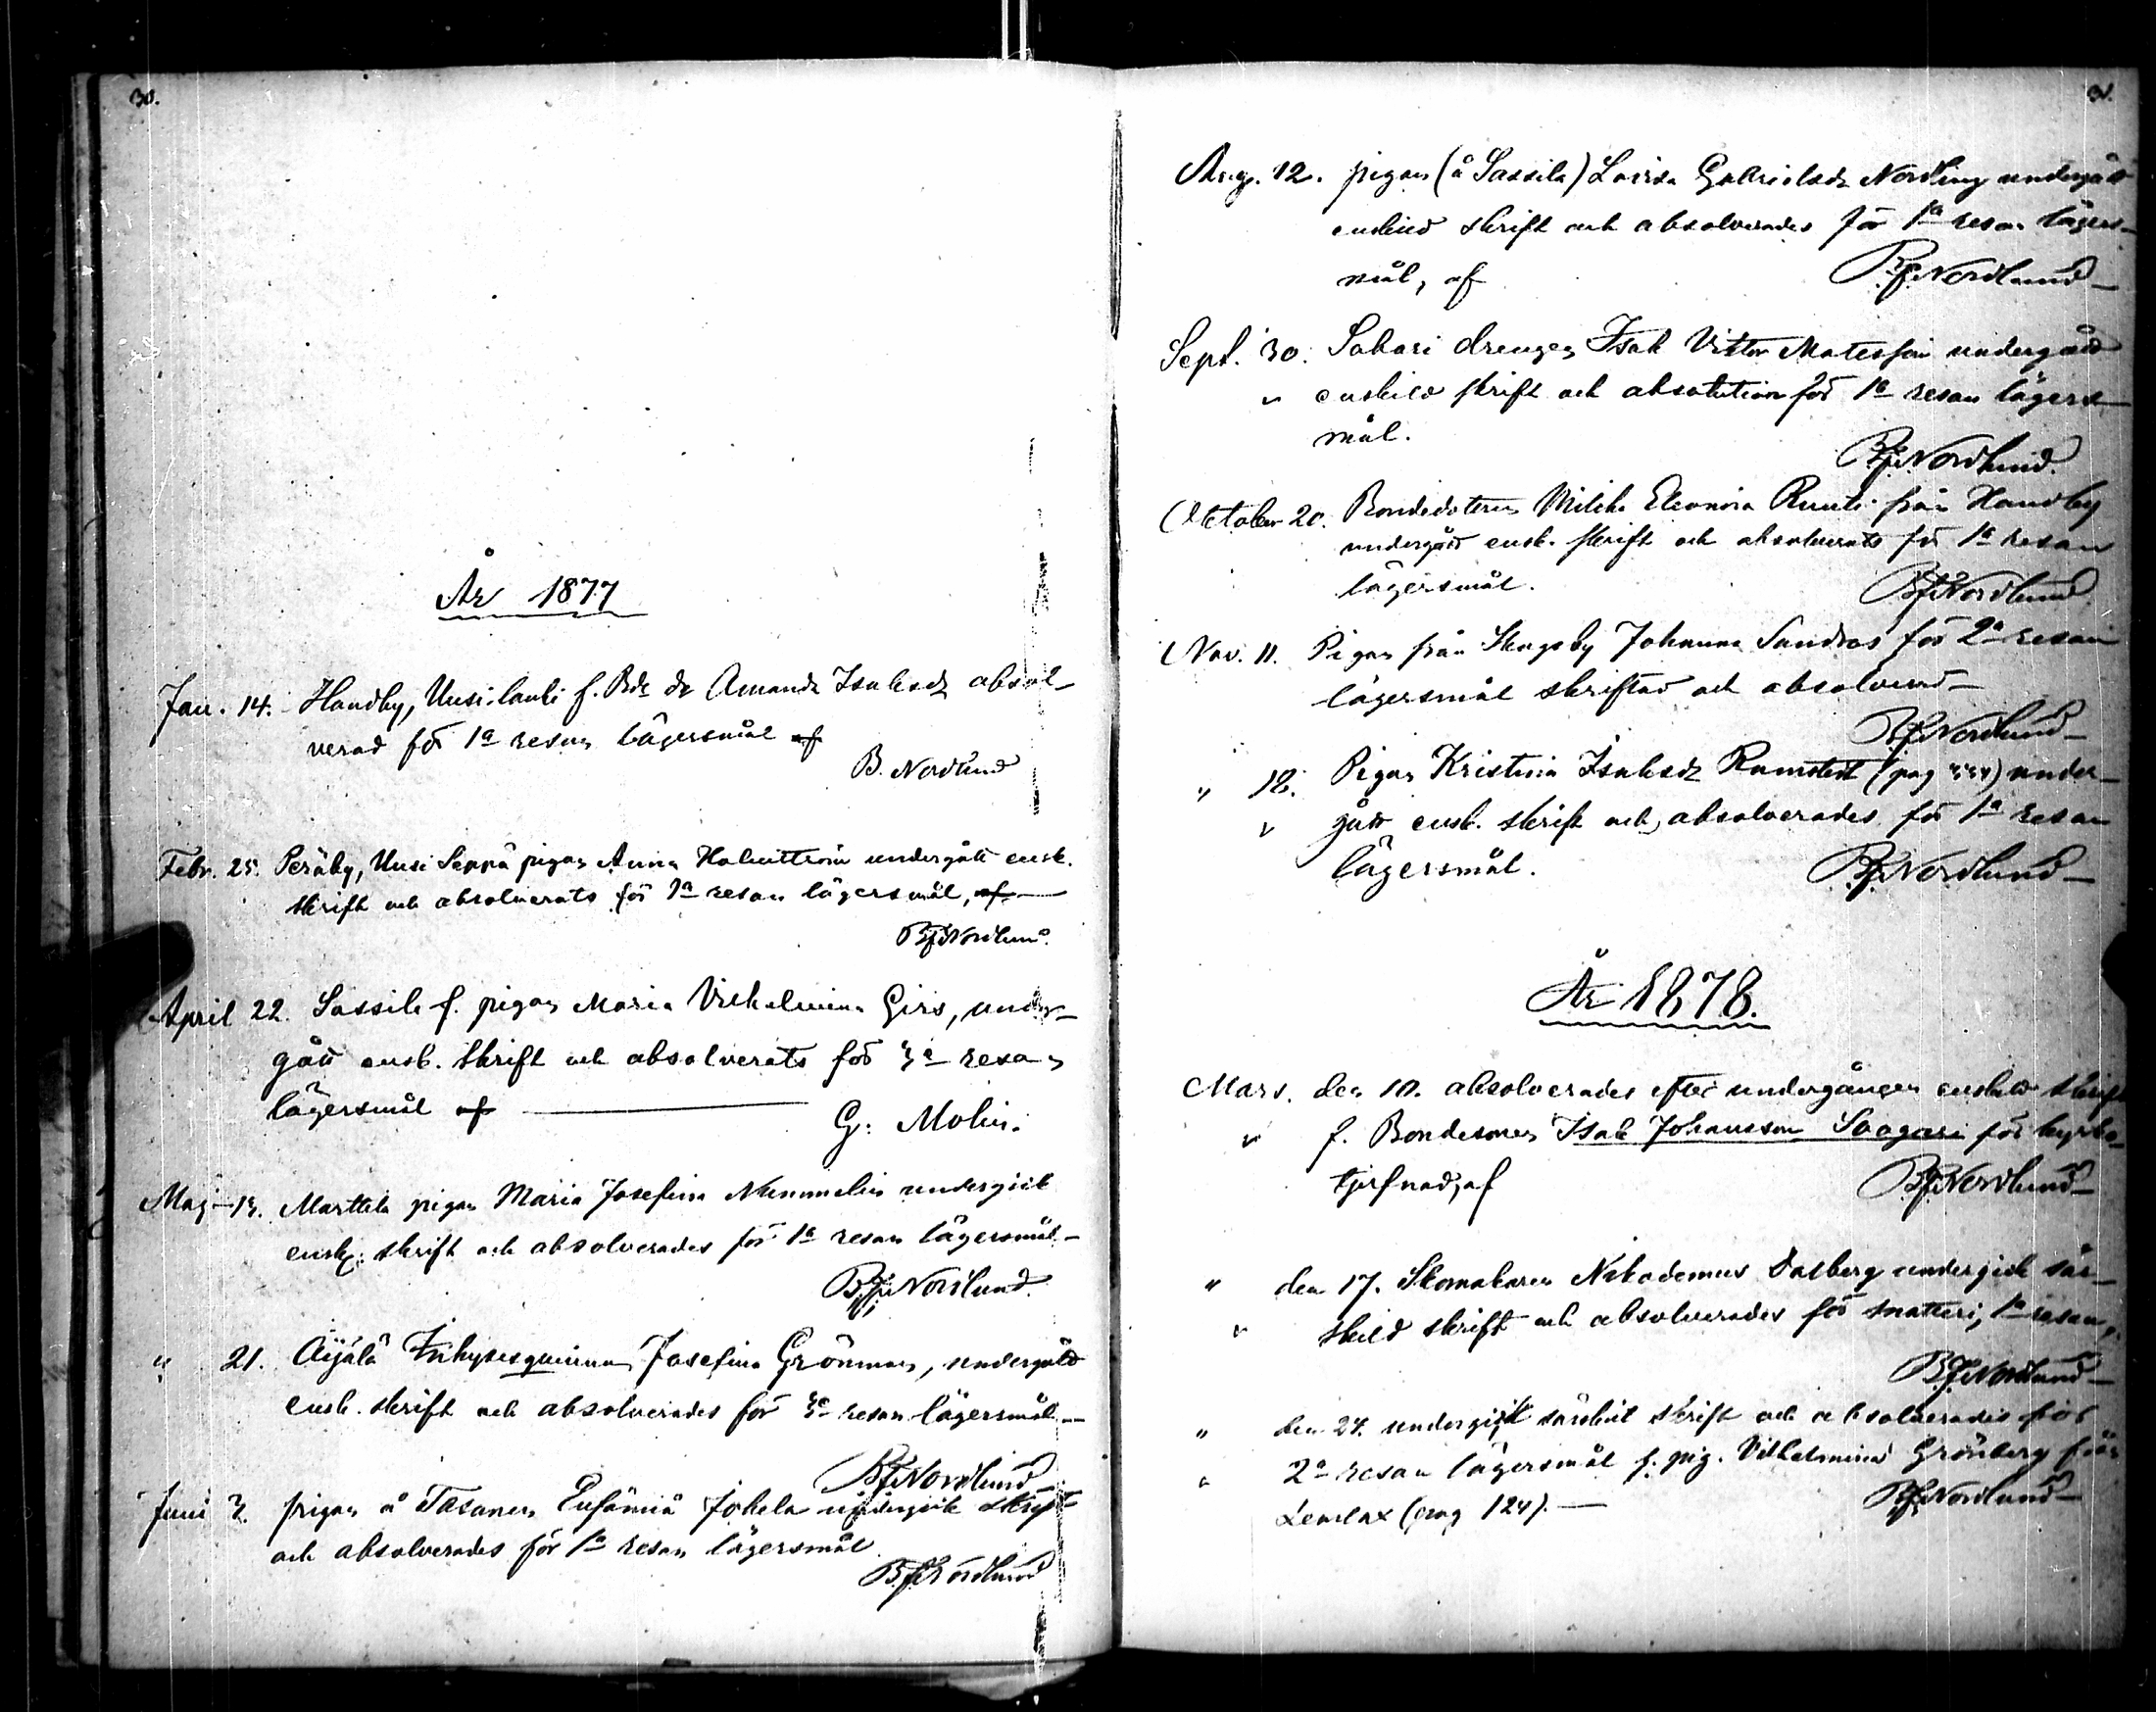 30.
År 1877
Jan. 14. Handby, Uusilaubi f. Bde dr Amanda Isaksdr absol-
verad för 1a resan lägersmål af
B. Nordlund
Febr. 25. Peräby, Uusi Seppä pigan Anna undergått ensk.
skrift och absolverats för 1a resan lägersmål, af
BfNordlund.
April 22. Sassila f. pigan Maria Vilhelmina Girs, under-
gått ensk. skrift och absolverats för 3e resan
lägersmål af
G. Molin.
Maj 13. Marttila pigan Maria Josefina Nummelin undergick
ensk. skrift och absolverades för 1a resan lägersmål-
BfNordlund.
" 21. Äijälä Inhysesqvinnan Josefina Grönman, undergått
ensk. skrift och absolverades för 3e resan lägersmål-
BfNordlund
Juni 3. pigan å Tasanen Eufämiä Jokela undergick skrift
och absolverades för 1a resan lägersmål
BfNordlund
31.
Aug. 12. pigan (å Sassila) Lovisa Gabrielsdr Nordling undergått
enskild skrift och absolverades för 1a resan lägers-
mål, af BfNordlund-
Sept. 30. Sakari drengen Isak Viktor Matesson undergått
" enskild skrift och absolution för 1a resan lägers-
mål.
BfNordlund.
October 20. Bondedotern Milika Eleonora Ruuti från Handby
undergått ensk. skrift och absolverats för 1a resan
lägersmål. BfNordlund
Nov. 11. Pigan från Skogsby Johanna Sandros för 2a resan
lägersmål skriftad och absolverad-
BfNordlund-
" 18. Pigan Kristina Isaksdr Ramstedt (pag ) under-
" gått ensk. skrift och absolverades för 1a resan
lägersmål. BfNordlund-
År 1878.
Mars. den 10. absolverades efter undergången enskild skrift
" f. Bondesonen Isak Johansson Soagari för kyrko-
tjufnad, af BfNordlund-
" den 17. Skomakaren Nikodemus Dalberg undergick sär-
" skild skrift och absolverades för snatteri, 1a resan,
BfNordlund-
" den 24. undergick särskilt skrift och absolverades för
" 2a resan lägersmål f. pig. Vilhelmina Grönberg från
Lemlax (pag 124).- BfNordlund-